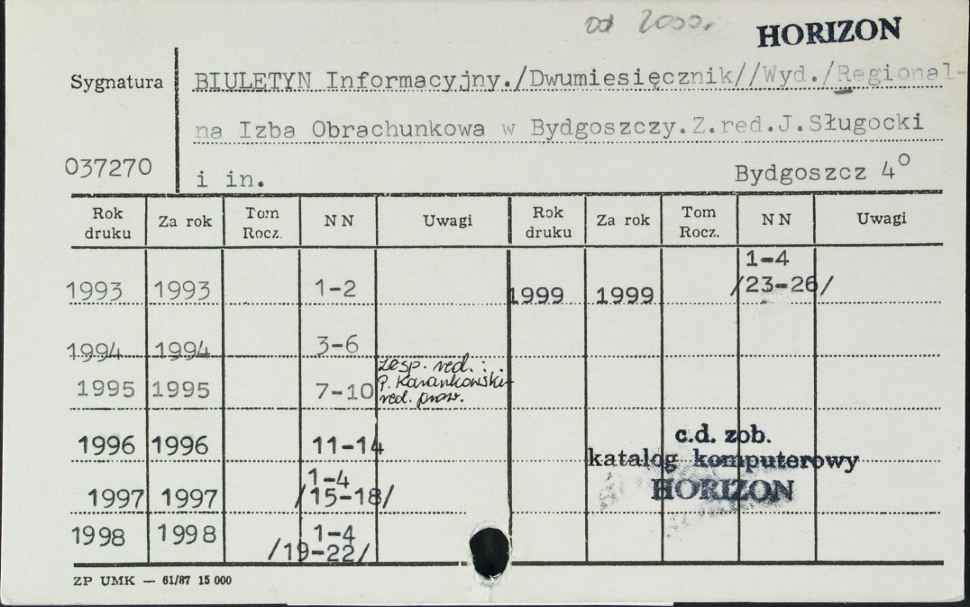 od 2000.
HORIZON
Sygnatura
BIULETYN Informacyjny./Dwumiesięcznik//Wyd./Regional-
na Izba Obrachunkowa w Bydgoszczy.Z.red.J.Sługocki
037270
i in.
Bydgoszcz 4°
Rok druku Za rok Tom Rocz. NN Uwagi Rok druku Za rok Tom Rocz. NN Uwagi
1993 1993 1-2 1999 1999 1-4 /23-26/
1994 1994 3-6
1995 1995 7-10 zesp. red.: P. Karankowski red. prow.
1996 1996 11-14
c.d. zob.
katalog komputerowy
HORIZON
1997 1997 1-4 /15-18/
1998 1998 1-4 /19-22/
ZP UMK — 61/87 15 000